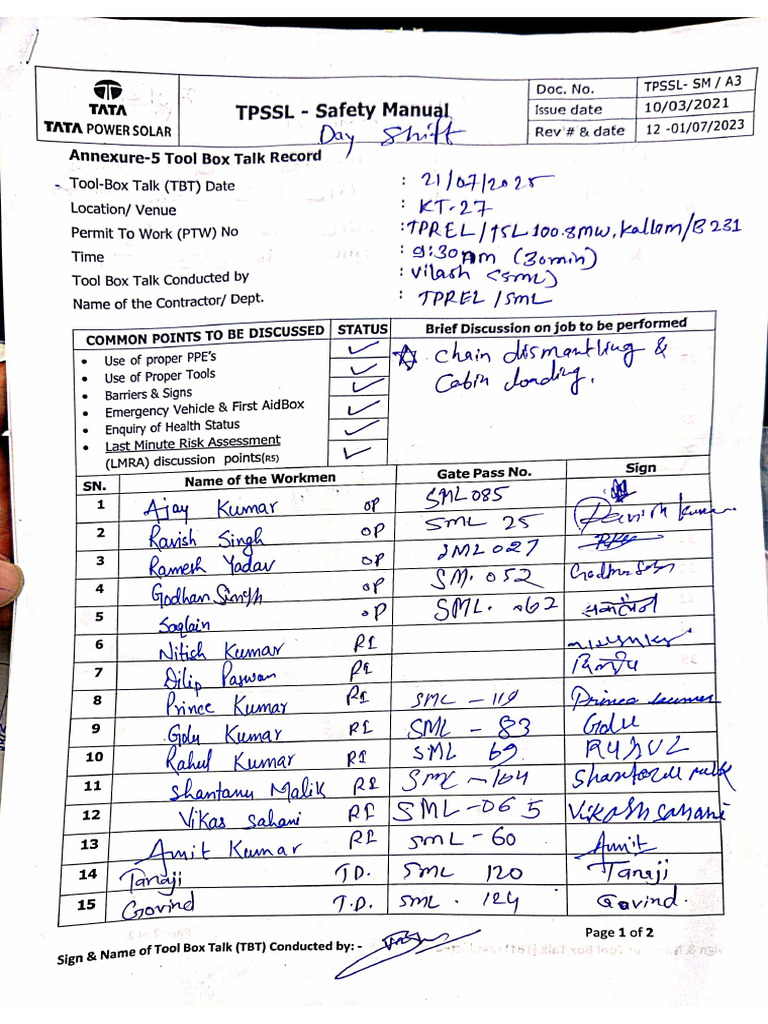 TATA
TATA POWER SOLAR
TPSSL - Safety Manual
Day Shift
Doc. No. TPSSL- SM / A3
Issue date 10/03/2021
Rev # & date 12 -01/07/2023
Annexure-5 Tool Box Talk Record
Tool-Box Talk (TBT) Date : 21/07/2025
Location/ Venue : KT-27
Permit To Work (PTW) No : TPREL/15L100.8MW, Kallam/B231
Time : 9:30 AM (30min)
Tool Box Talk Conducted by : Vilash (SML)
Name of the Contractor/ Dept. : TPREL / SML
COMMON POINTS TO BE DISCUSSED STATUS Brief Discussion on job to be performed
• Use of proper PPE's ✓
• Use of Proper Tools ✓
• Barriers & Signs ✓
• Emergency Vehicle & First AidBox ✓
• Enquiry of Health Status ✓
• Last Minute Risk Assessment
(LMRA) discussion points(R5) ✓
Chain dismantling &
Cabin loading.
SN. Name of the Workmen Gate Pass No. Sign
1 Ajay Kumar OP SML 085
2 Ravish Singh OP SML 25 Ravish Kumar
3 Ramesh Yadav OP SML 027
4 Godhan Singh OP SM. 052
5 Saqlain OP SML. 062
6 Nitish Kumar RI
7 Dilip Paswan RI
8 Prince Kumar RI SML - 119 Prince kumar
9 Golu Kumar RI SML - 83 Golu
10 Rahul Kumar RI SML 69 RAHUL
11 Shantanu Malik RI SML - 104
12 Vikas Sahani RI SML - 065 Vikash sahani
13 Amit Kumar RI SML - 60 Amit
14 Tanaji T.D. SML 120 Tanaji
15 Govind T.D. SML . 124 Govind.
Page 1 of 2
Sign & Name of Tool Box Talk (TBT) Conducted by: -